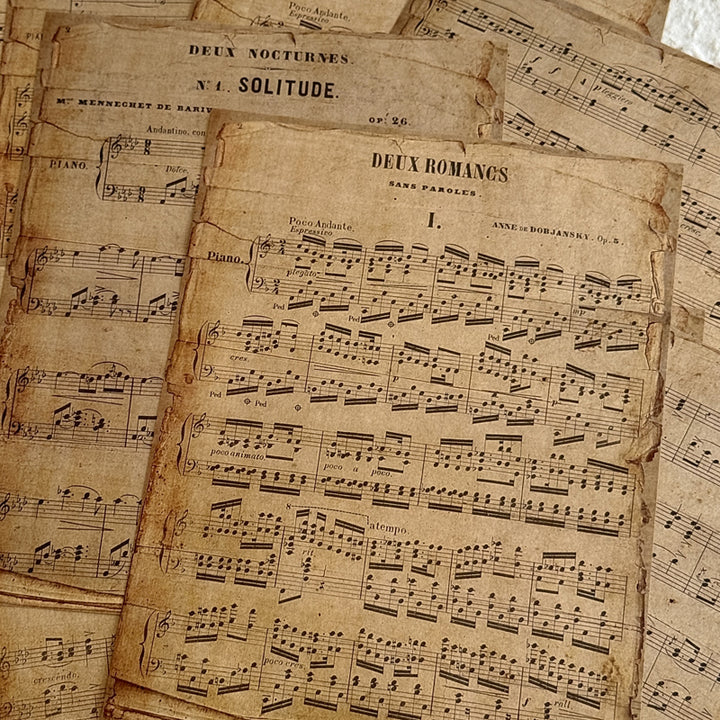 Poco Andante.
Espressivo
PIA
2
DEUX NOCTURNES.
Nº 1. SOLITUDE.
Mme MENNECHET DE BARIV
OP: 26.
Andantino, con
PIANO.
Dolce.
crescendo.
2
DEUX ROMANCS
SANS PAROLES.
I.
ANNE DE DOBJANSKY. Op. 5
Poco Andante.
Espressivo
Piano.
p legato.
Ped Ped Ped
mp
cres. p p
Ped Ped
poco animato. poco a poco.
8
rit. atempo.
poco cres.
f rall
f f
p leggiero
cresc.